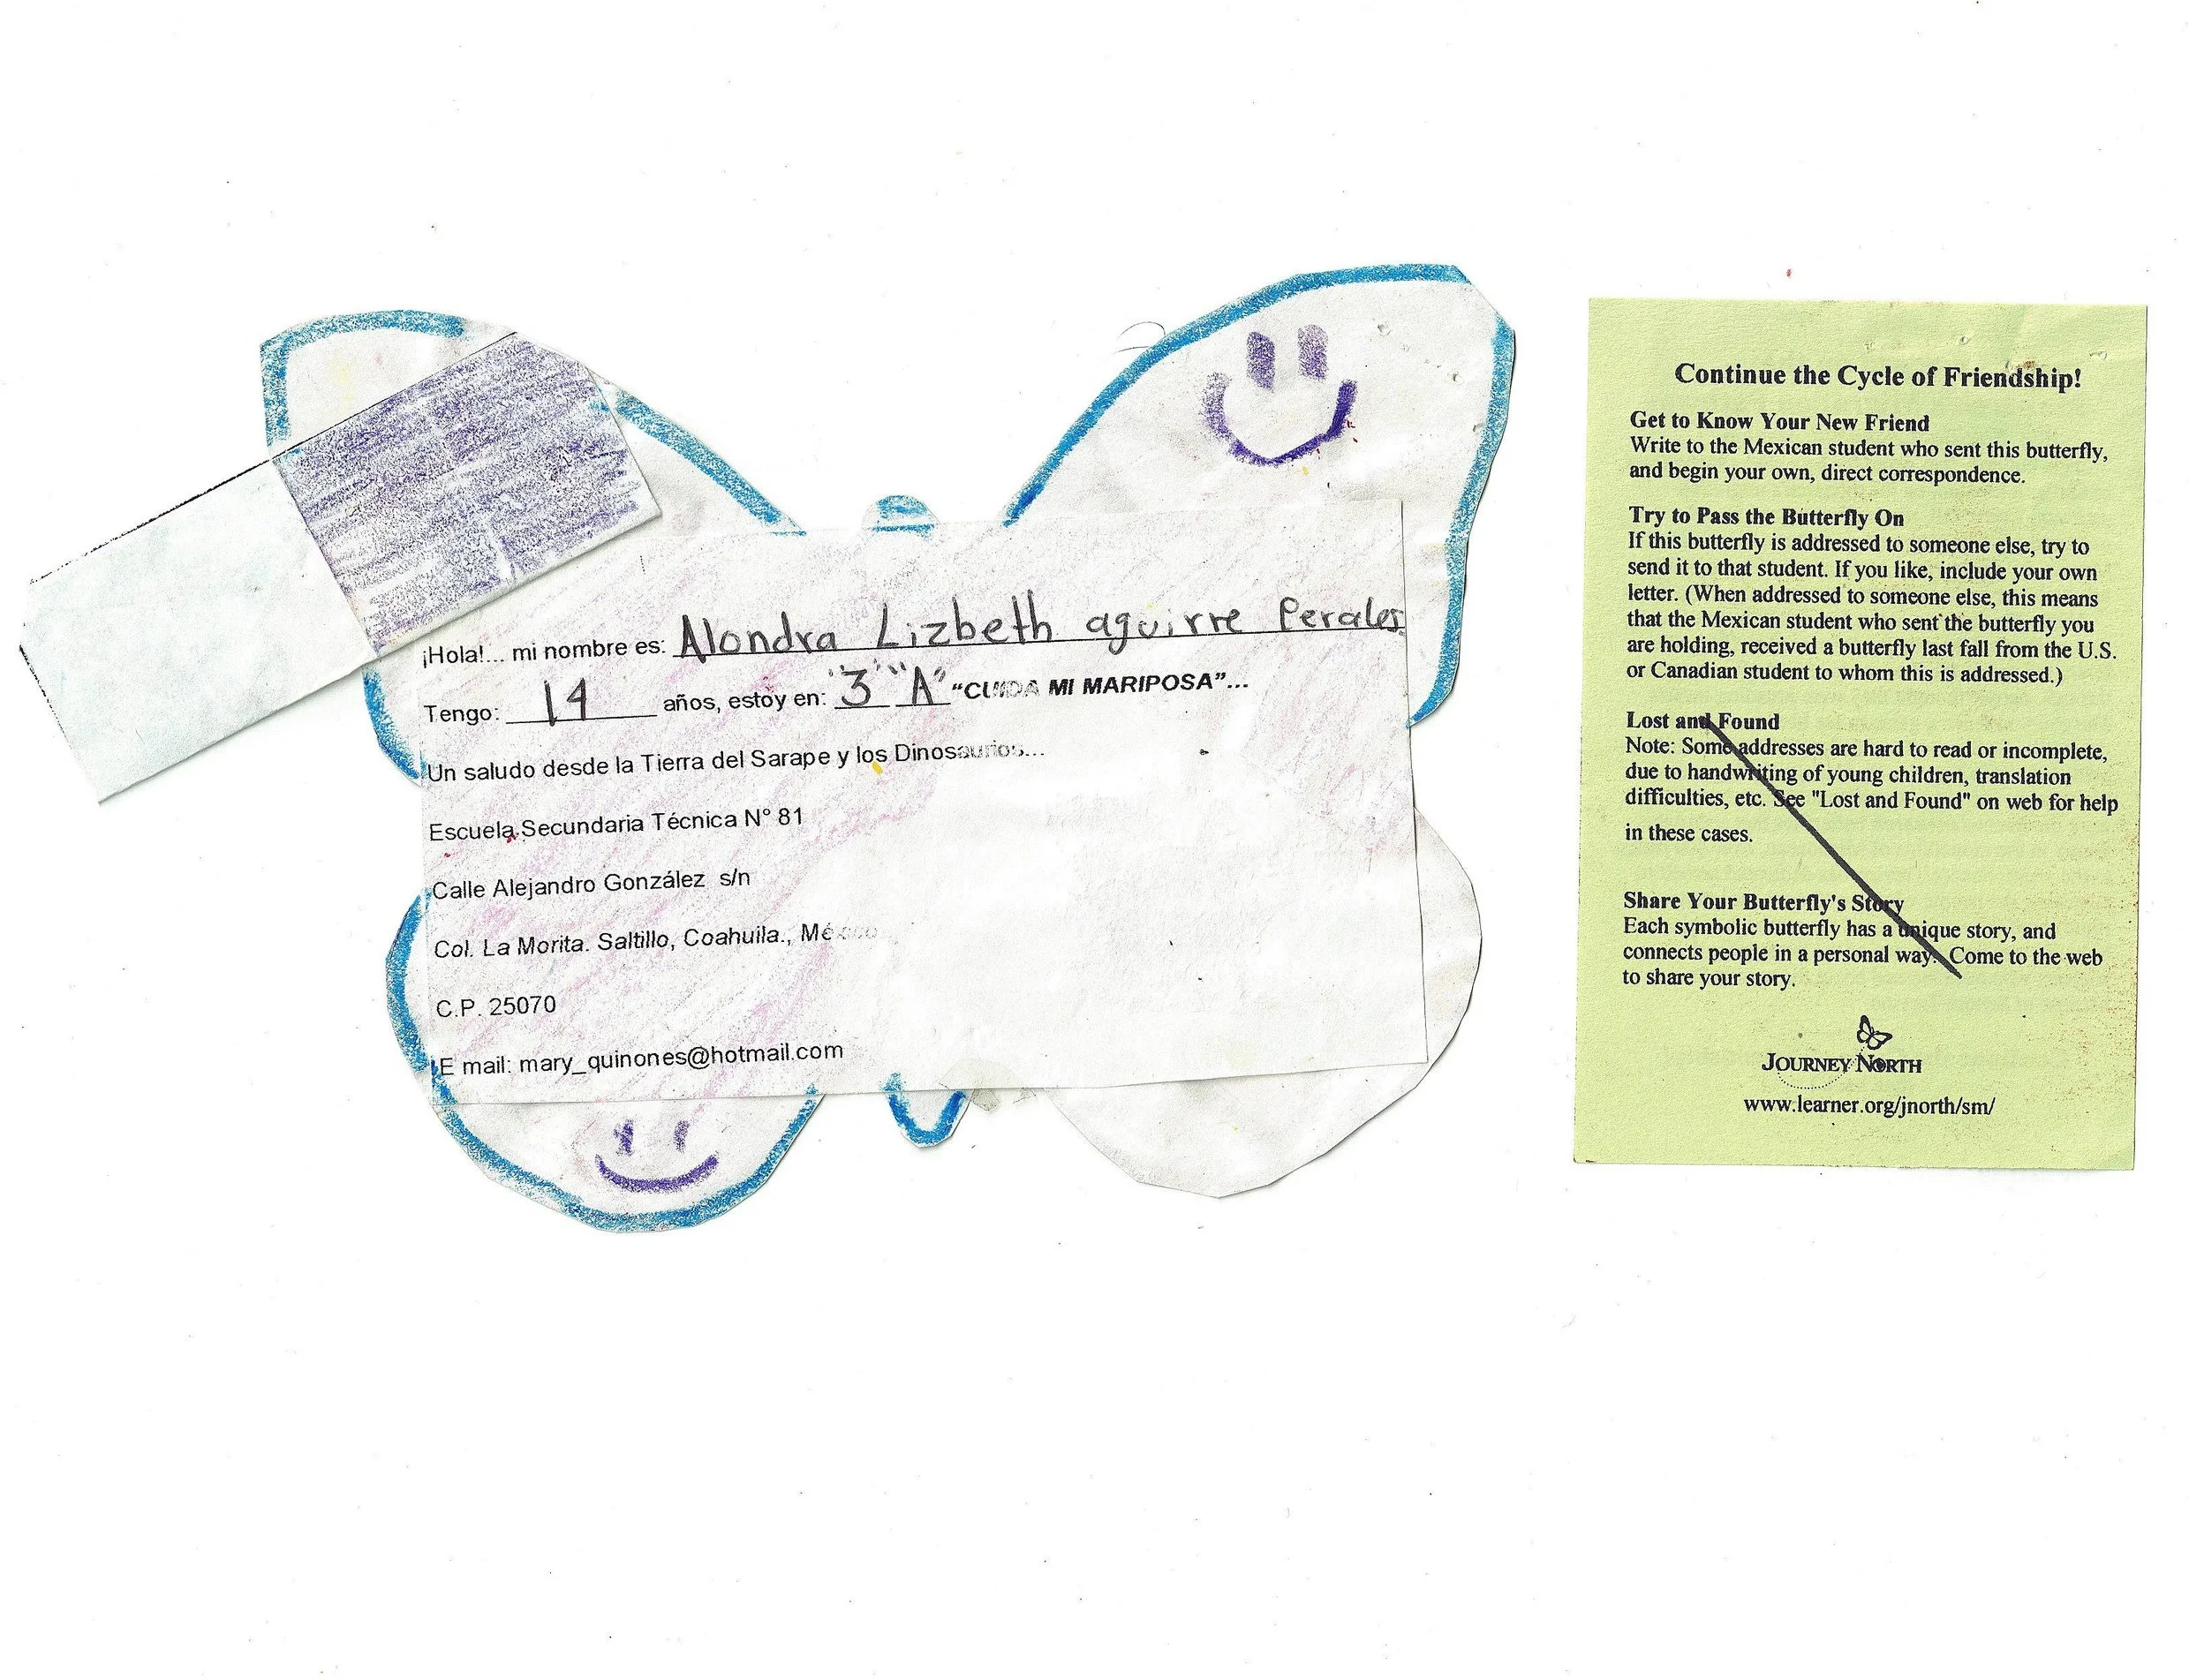 ¡Hola!... mi nombre es: Alondra Lizbeth aguirre Perales.
Tengo: 14 años, estoy en: "3" "A" "CUIDA MI MARIPOSA"...
Un saludo desde la Tierra del Sarape y los Dinosaurios...
Escuela Secundaria Técnica N° 81
Calle Alejandro González s/n
Col. La Morita. Saltillo, Coahuila., México
C.P. 25070
E mail: mary_quinones@hotmail.com
Continue the Cycle of Friendship!
Get to Know Your New Friend
Write to the Mexican student who sent this butterfly,
and begin your own, direct correspondence.
Try to Pass the Butterfly On
If this butterfly is addressed to someone else, try to
send it to that student. If you like, include your own
letter. (When addressed to someone else, this means
that the Mexican student who sent the butterfly you
are holding, received a butterfly last fall from the U.S.
or Canadian student to whom this is addressed.)
Lost and Found
Note: Some addresses are hard to read or incomplete,
due to handwriting of young children, translation
difficulties, etc. See "Lost and Found" on web for help
in these cases.
Share Your Butterfly's Story
Each symbolic butterfly has a unique story, and
connects people in a personal way. Come to the web
to share your story.
JOURNEY NORTH
www.learner.org/jnorth/sm/